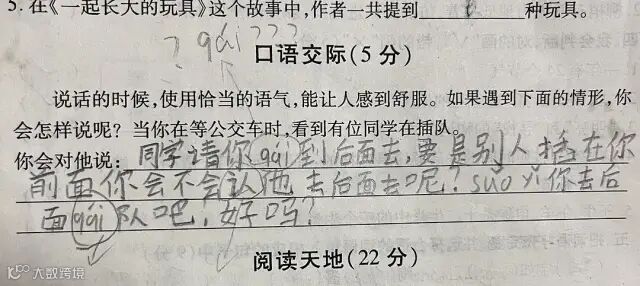 5. 在《一起长大的玩具》这个故事中,作者一共提到 8 种玩具。
? gái ???
口语交际(5 分)
说话的时候,使用恰当的语气,能让人感到舒服。如果遇到下面的情形,你
会怎样说呢? 当你在等公交车时,看到有位同学在插队。
你会对他说: 同学请你 gái 到后面去,要是别人插在你
前面你会不会认他去后面去呢? suǒ yǐ 你去后
面 gái 队吧,好吗?
阅读天地(22 分)
大数跨境